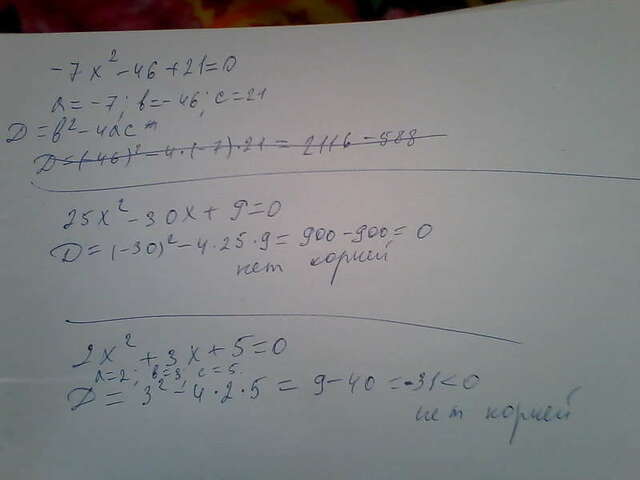 -7x² - 46 + 21 = 0
a = -7; b = -46; c = 21
D = b² - 4ac
D = (-46)² - 4·(-7)·21 = 2116 - 588
25x² - 30x + 9 = 0
D = (-30)² - 4·25·9 = 900 - 900 = 0
нет корней
2x² + 3x + 5 = 0
a=2; b=3; c=5.
D = 3² - 4·2·5 = 9 - 40 = -31 < 0
нет корней